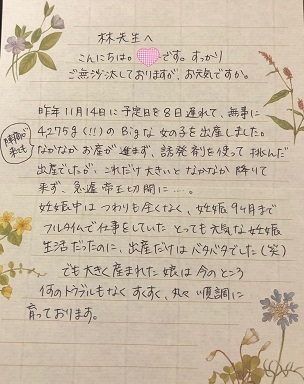 林先生へ
こんにちは。です。すっかり
ご無沙汰しておりますが、お元気ですか。
昨年11月14日に予定日を8日遅れて、無事に
4,275g(!!)のBigな女の子を出産しました。
陣痛が来ても
なかなかお産が進まず、誘発剤を使って挑んだ
出産でしたが、これだけ大きいとなかなか降りて
来ず、急遽帝王切開に…。
妊娠中はつわりも全くなく、妊娠9ヶ月まで
フルタイムで仕事をしていたとっても元気な妊娠
生活だったのに、出産だけはバタバタでした(笑)
でも大きく産まれた娘は今のところ
何のトラブルもなくすくすく、丸々順調に
育っております。